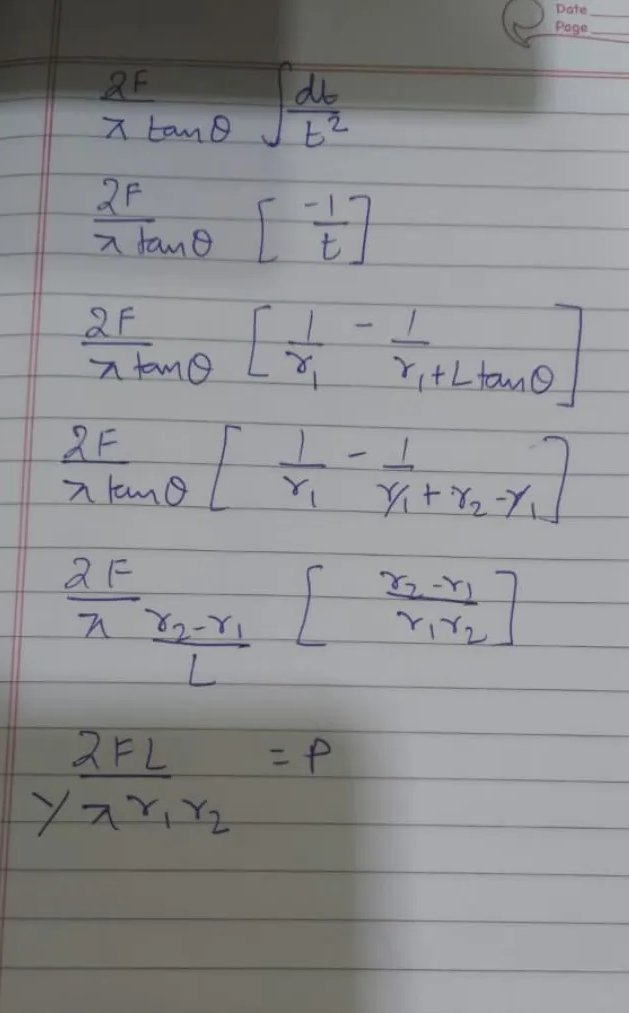 Date
Page
2F/(π tanθ) ∫ dt/t²
2F/(π tanθ) [ -1/t ]
2F/(π tanθ) [ 1/r₁ - 1/(r₁ + L tanθ) ]
2F/(π tanθ) [ 1/r₁ - 1/(r₁ + r₂ - r₁) ]
2F/(π (r₂-r₁)/L) [ (r₂-r₁)/(r₁r₂) ]
2FL/(Yπr₁r₂) = P